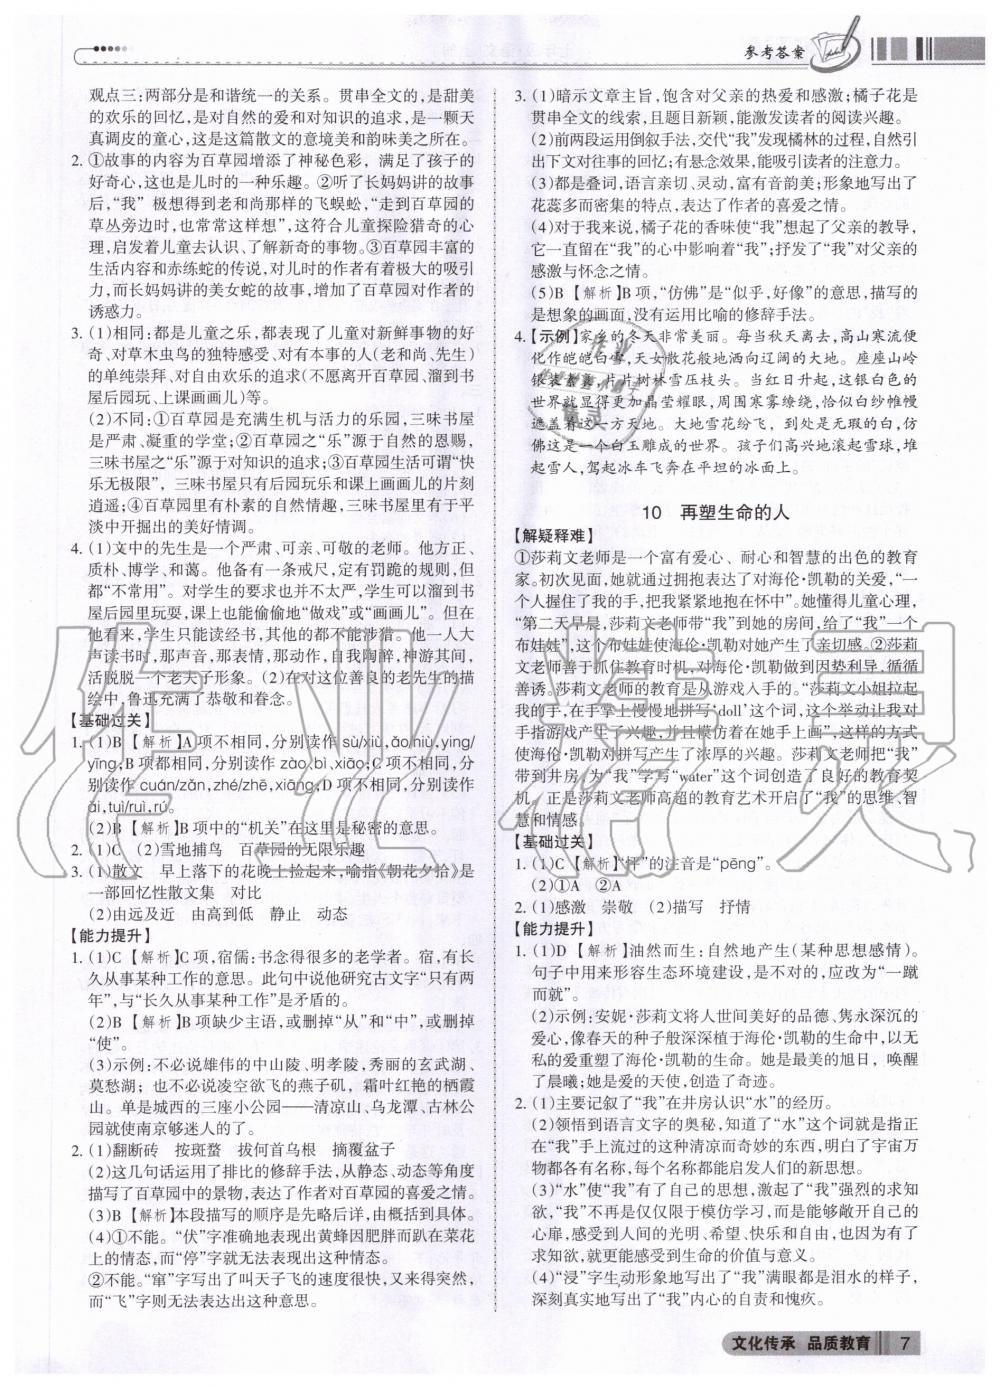 参考答案
观点三:两部分是和谐统一的关系。贯串全文的,是甜美
的欢乐的回忆,是对自然的爱和对知识的追求,是一颗天
真调皮的童心,这是这篇散文的意境美和韵味美之所在。
2. ①故事的内容为百草园增添了神秘色彩，满足了孩子的
好奇心，这也是儿时的一种乐趣。②听了长妈妈讲的故事
后，“我”极想得到老和尚那样的飞蜈蚣，“走到百草园的
草丛旁边时，也常常这样想”，这符合儿童探险猎奇的心
理,启发着儿童去认识、了解新奇的事物。③百草园丰富的
生活内容和赤练蛇的传说,对儿时的作者有着极大的吸引
力,而长妈妈讲的美女蛇的故事,增加了百草园对作者的
诱惑力。
3. (1)相同:都是儿童之乐,都表现了儿童对新鲜事物的好
奇、对草木虫鸟的独特感受、对有本事的人(老和尚、先生)
的单纯崇拜、对自由欢乐的追求(不愿离开百草园、溜到书
屋后园玩、上课画画儿)等。
(2)不同:①百草园是充满生机与活力的乐园,三味书屋
是严肃、凝重的学堂;②百草园之“乐”源于自然的恩赐,
三味书屋之“乐”源于对知识的追求;③百草园乐活可谓“快
乐无极限”，三味书屋只有后园玩乐和课上画画儿的片刻
逍遥;④百草园里有朴素的自然情趣,三味书屋里有于平
淡中开掘出的美好情调。
4. (1)文中的先生是一个严肃、可亲、可敬的老师。他方正、
质朴、博学、和蔼。他备有一条戒尺，定有罚跪的规则，但
都“不常用”。对学生的要求也并不太严,学生可以溜到书
屋后园里玩耍,课上也能偷偷地“做戏”或“画画儿”。但在
他看来,学生只能读经书,其他的都不能涉猎。他一人大
声读书时,那声音,那表情,那动作,自我陶醉,神游其间,
活脱脱一个老夫子形象。(2)在对这位善良的老先生的描
绘中,鲁迅充满了恭敬和眷念。
【基础过关】
1. (1)B 【解析】A项不相同,分别读作 sù/xiù,ǎo/niù,yìng/
yīng;B项都相同,分别读作 zào,bì,xiǎo;C项不相同,分
别读作 cuán/zǎn,zhé/zhē,xiáng;D项不相同,分别读作
ái,tuì/ruì,rú。
(2)B 【解析】B项中的“机关”在这里是秘密的意思。
2. (1)C (2)雪地捕鸟 百草园的无限乐趣
3. (1)散文 早上落下的花晚上捡起来,喻指《朝花夕拾》是
一部回忆性散文集 对比
(2)由远及近 由高到低 静止 动态
【能力提升】
1. (1)C 【解析】C项,宿儒:书念得很多的老学者。宿,有长
久从事某种工作的意思。此句中说他研究古文字“只有两
年”,与“长久从事某种工作”是矛盾的。
(2)B 【解析】B项缺少主语,或删掉“从”和“中”,或删掉
“使”。
(3)示例:不必说雄伟的中山陵、明孝陵，秀丽的玄武湖、
莫愁湖;也不必说凌空欲飞的燕子矶，霜叶红艳的栖霞
山。单是城西的三座小公园——清凉山、乌龙潭、古林公
园就使南京够迷人的了。
2. (1)翻断砖 按斑蝥 拔何首乌根 摘覆盆子
(2)这几句话运用了排比的修辞手法,从静态、动态等角度
描写了百草园中的景物,表达了作者对百草园的喜爱之情。
(3)B 【解析】本段描写的顺序是先略后详,由概括到具体。
(4)①不能。“伏”字准确地表现出黄蜂因肥胖而趴在菜花
上的情态,而“停”字就无法表现出这种情态。
②不能。“窜”字写出了叫天子飞的速度很快,又来得突然,
而“飞”字则无法表达出这种意思。
3. (1)暗示文章主旨,饱含对父亲的热爱和感激;橘子花是
贯串全文的线索,且题目新颖,能激发读者的阅读兴趣。
(2)前两段运用倒叙手法,交代“我”发现橘林的过程,自然引
出下文对往事的回忆;有悬念效果,能吸引读者的注意力。
(3)都是叠词,语言亲切、灵动,富有音韵美;形象地写出了
花蕊多而密集的特点,表达了作者的喜爱之情。
(4)对于我来说,橘子花的香味使“我”想起了父亲的教导,
它一直留在“我”的心中影响着“我”;抒发了“我”对父亲的
感激与怀念之情。
(5)B 【解析】B项,“仿佛”是“似乎,好像”的意思,描写的
是想象的画面,没有运用比喻的修辞手法。
4.【示例】家乡的冬天非常美丽。每当秋天离去,高山寒流便
化作皑皑白雪,天女散花般地洒向辽阔的大地。座座山岭
银装素裹,片片树林雪压枝头。当红日升起,这银白色的
世界就显得更加晶莹耀眼,周围寒雾缭绕,恰似白纱帷幔
遮盖着这一方天地。大地雪花纷飞，到处是无瑕的白,仿
佛这是一个白玉雕成的世界。孩子们高兴地滚起雪球,堆
起雪人,驾起冰车飞奔在平坦的冰面上。
10 再塑生命的人
【解疑释难】
①莎莉文老师是一个富有爱心、耐心和智慧的出色的教育
家。初次见面,她就通过拥抱表达了对海伦·凯勒的关爱,“一
个人握住了我的手,把我紧紧地抱在怀中”。她懂得儿童心理,
“第二天早晨,莎莉文老师带“我”到她的房间,给了“我”一个
布娃娃”,这个布娃娃使海伦·凯勒对她产生了亲切感。②莎莉
文老师善于抓住教育时机,对海伦·凯勒做到因势利导,循循
善诱。莎莉文老师的教育是从游戏入手的。“莎莉文小姐拉起
我的手,在手掌上慢慢地拼写‘doll’这个词,这个举动让我对
手指游戏产生了兴趣,并且模仿着在她手上画”,这样的方式
使海伦·凯勒对拼写产生了浓厚的兴趣。莎莉文老师把“我”
带到井房,为“我”学写“water”这个词创造了良好的教育契
机。正是莎莉文老师高超的教育艺术开启了“我”的思维、智
慧和情感。
【基础过关】
1. (1)C 【解析】“怦”的注音是“pēng”。
(2)①A ②A
2. (1)感激 崇敬 (2)描写 抒情
【能力提升】
1. (1)D 【解析】油然而生:自然地产生(某种思想感情)。
句子中用来形容生态环境建设,是不对的,应改为“一蹴
而就”。
(2)示例:安妮·莎莉文将人世间美好的品德、隽永深沉的
爱心,像春天的种子般深深植于海伦·凯勒的生命中,以无
私的爱重塑了海伦·凯勒的生命。她是最美的旭日，唤醒
了晨曦;她是爱的天使,创造了奇迹。
2. (1)主要记叙了“我”在井房认识“水”的经历。
(2)领悟到语言文字的奥秘,知道了“水”这个词就是指正
在“我”手上流过的这种清凉而奇妙的东西,明白了宇宙万
物都各有名称,每个名称都能启发人们的新思想。
(3)“水”使“我”有了自己的思想,激起了“我”强烈的求知
欲,“我”不再是仅仅限于模仿学习,而是能够敞开自己的
心扉,感受到人间的光明、希望、快乐和自由,也因为有了
求知欲,就更能感受到生命的价值与意义。
(4)“浸”字生动形象地写出了“我”满眼都是泪水的样子,
深刻真实地写出了“我”内心的自责和愧疚。
文化传承 品质教育 7
作业精灵